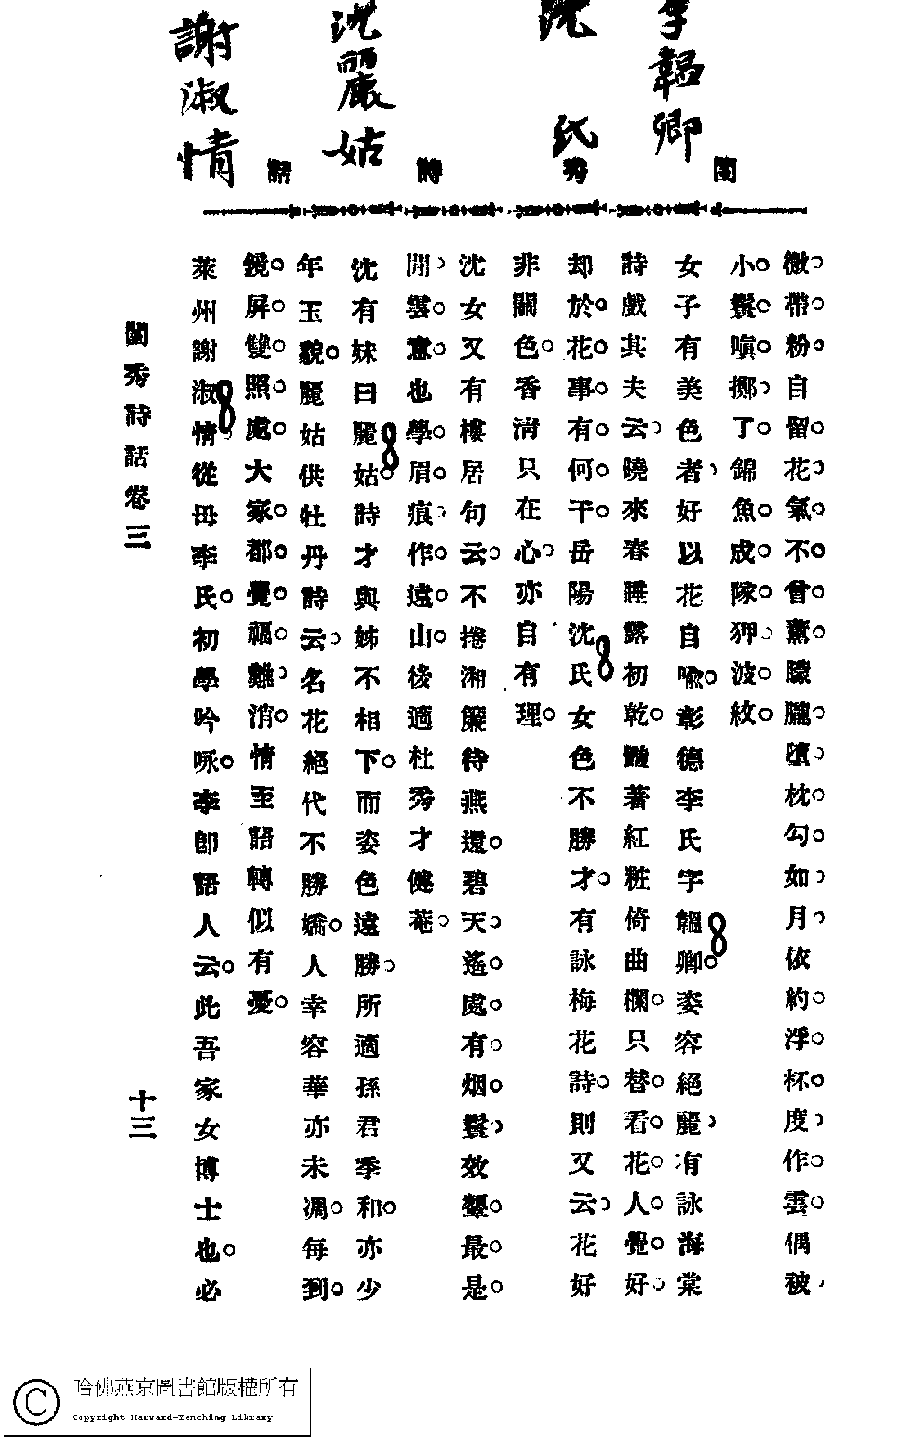 李韞卿
沈氏
沈麗姑
謝淑情
閨秀詩話
微帶粉自留花氣不曾薰朦朧墮枕勾如月依約浮杯度作雲偶被
小鬟嗔擲了錦魚成隊狎波紋
女子有美色者好以花自喩彰德李氏字韞卿姿容絕麗有詠海棠
詩戲其夫云曉來春睡露初乾豔著紅粧倚曲欄只替看花人覺好
却於花事有何干岳陽沈氏女色不勝才有詠梅花詩則又云花好
非關色香淸只在心亦自有理
沈女又有樓居句云不捲湘簾待燕還碧天遙處有烟鬟效顰最是
閒雲意也學眉痕作遠山後適杜秀才健菴
沈有妹曰麗姑詩才與姊不相下而姿色遠勝所適孫君季和亦少
年玉貌麗姑供牡丹詩云名花絕代不勝嬌人幸容華亦未凋每到
鏡屏雙照處大家都覺福難消情至語轉似有憂
萊州謝淑情從母李氏初學吟咏李卽語人云此吾家女博士也必
閨秀詩話卷三
十三
哈佛燕京圖書館版權所有
Copyright Harvard-Yenching Library